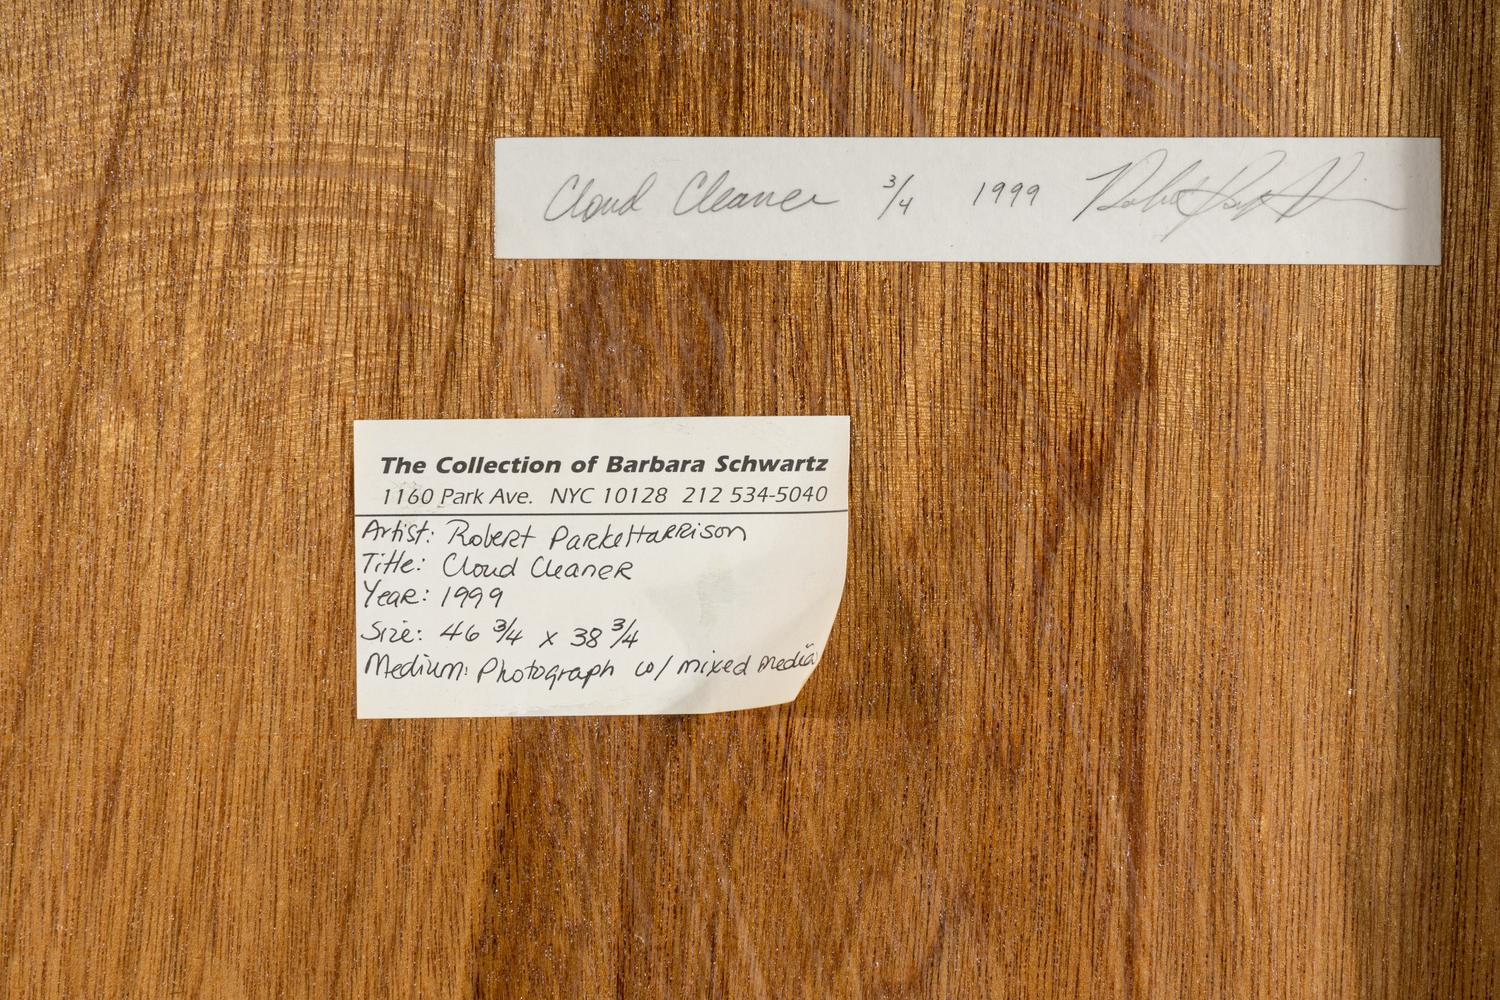 Cloud Cleaner 3/4 1999 Robert ParkeHarrison
The Collection of Barbara Schwartz
1160 Park Ave. NYC 10128 212 534-5040
Artist: Robert ParkeHarrison
Title: Cloud Cleaner
Year: 1999
Size: 46 3/4 x 38 3/4
Medium: Photograph w/ mixed media